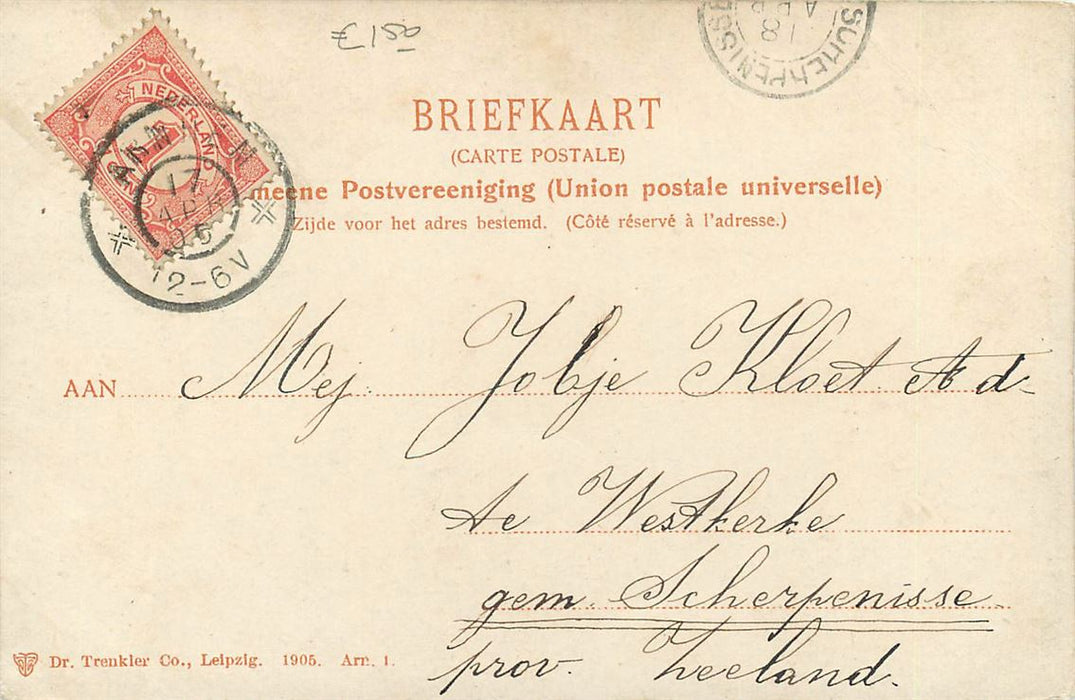 SCHERPENISSE
18
APR
NEDERLAND
1
17
APR
05
12-6V
BRIEFKAART
(CARTE POSTALE)
meene Postvereeniging (Union postale universelle)
Zijde voor het adres bestemd. (Côté réservé à l'adresse.)
AAN Mej. Jobje Kloet Ad
te Westkerke
gem. Scherpenisse
prov. Zeeland.
Dr. Trenkler Co., Leipzig. 1905. Arn. 1.